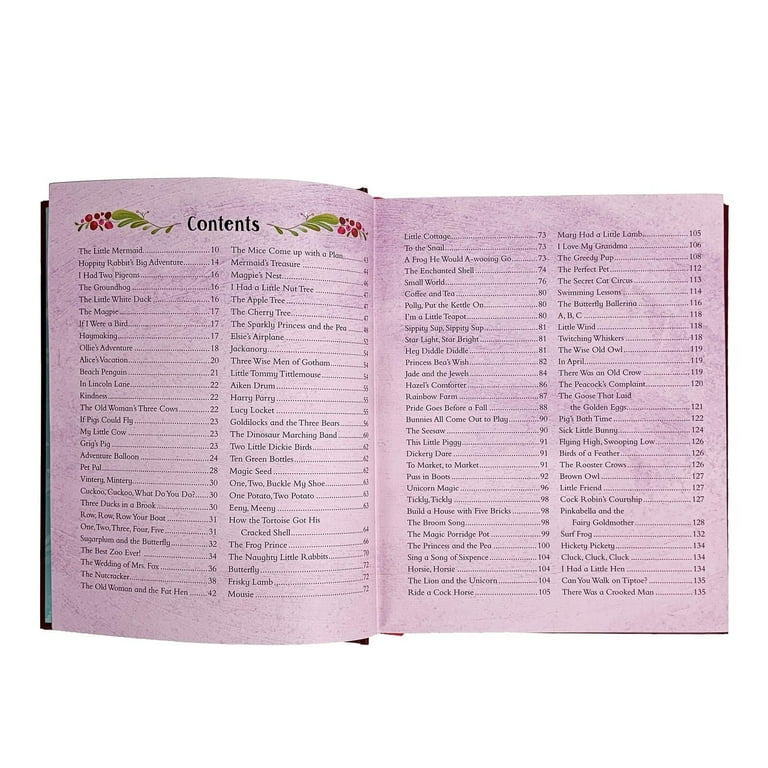 Contents
The Little Mermaid.....10
Hoppity Rabbit's Big Adventure.....14
I Had Two Pigeons.....16
The Groundhog.....16
The Little White Duck.....16
The Magpie.....17
If I Were a Bird.....17
Haymaking.....17
Ollie's Adventure.....18
Alice's Vacation.....20
Beach Penguin.....21
In Lincoln Lane.....22
Kindness.....22
The Old Woman's Three Cows.....22
If Pigs Could Fly.....23
My Little Cow.....23
Grig's Pig.....23
Adventure Balloon.....24
Pet Pal.....28
Vintery, Mintery.....30
Cuckoo, Cuckoo, What Do You Do?.....30
Three Ducks in a Brook.....30
Row, Row, Row Your Boat.....31
One, Two, Three, Four, Five.....31
Sugarplum and the Butterfly.....32
The Best Zoo Ever!.....34
The Wedding of Mrs. Fox.....36
The Nutcracker.....38
The Old Woman and the Fat Hen.....42
The Mice Come up with a Plan.....43
Mermaid's Treasure.....44
Magpie's Nest.....
I Had a Little Nut Tree.....47
The Apple Tree.....47
The Cherry Tree.....47
The Sparkly Princess and the Pea.....
Elsie's Airplane.....52
Jackanory.....54
Three Wise Men of Gotham.....54
Little Tommy Tittlemouse.....54
Aiken Drum.....55
Harry Parry.....55
Lucy Locket.....55
Goldilocks and the Three Bears.....56
The Dinosaur Marching Band.....60
Two Little Dickie Birds.....62
Ten Green Bottles.....62
Magic Seed.....62
One, Two, Buckle My Shoe.....63
One Potato, Two Potato.....63
Eeny, Meeny.....63
How the Tortoise Got His
Cracked Shell.....64
The Frog Prince.....66
The Naughty Little Rabbits.....70
Butterfly.....72
Frisky Lamb.....72
Mousie.....72
Little Cottage.....73
To the Snail.....73
A Frog He Would A-wooing Go.....73
The Enchanted Shell.....74
Small World.....76
Coffee and Tea.....80
Polly, Put the Kettle On.....80
I'm a Little Teapot.....80
Sippity Sup, Sippity Sup.....81
Star Light, Star Bright.....81
Hey Diddle Diddle.....81
Princess Bea's Wish.....82
Jade and the Jewels.....84
Hazel's Comforter.....86
Rainbow Farm.....87
Pride Goes Before a Fall.....88
Bunnies All Come Out to Play.....90
The Seesaw.....90
This Little Piggy.....91
Dickery Dare.....91
To Market, to Market.....91
Puss in Boots.....92
Unicorn Magic.....96
Tickly, Tickly.....98
Build a House with Five Bricks.....98
The Broom Song.....98
The Magic Porridge Pot.....99
The Princess and the Pea.....100
Sing a Song of Sixpence.....104
Horsie, Horsie.....104
The Lion and the Unicorn.....104
Ride a Cock Horse.....105
Mary Had a Little Lamb.....105
I Love My Grandma.....106
The Greedy Pup.....108
The Perfect Pet.....112
The Secret Cat Circus.....113
Swimming Lessons.....114
The Butterfly Ballerina.....116
A, B, C.....118
Little Wind.....118
Twitching Whiskers.....118
The Wise Old Owl.....119
In April.....119
There Was an Old Crow.....119
The Peacock's Complaint.....120
The Goose That Laid
the Golden Eggs.....121
Pig's Bath Time.....122
Sick Little Bunny.....124
Flying High, Swooping Low.....126
Birds of a Feather.....126
The Rooster Crows.....126
Brown Owl.....127
Little Friend.....127
Cock Robin's Courtship.....127
Pinkabella and the
Fairy Goldmother.....128
Surf Frog.....132
Hickety Pickety.....134
Cluck, Cluck, Cluck.....134
I Had a Little Hen.....134
Can You Walk on Tiptoe?.....135
There Was a Crooked Man.....135